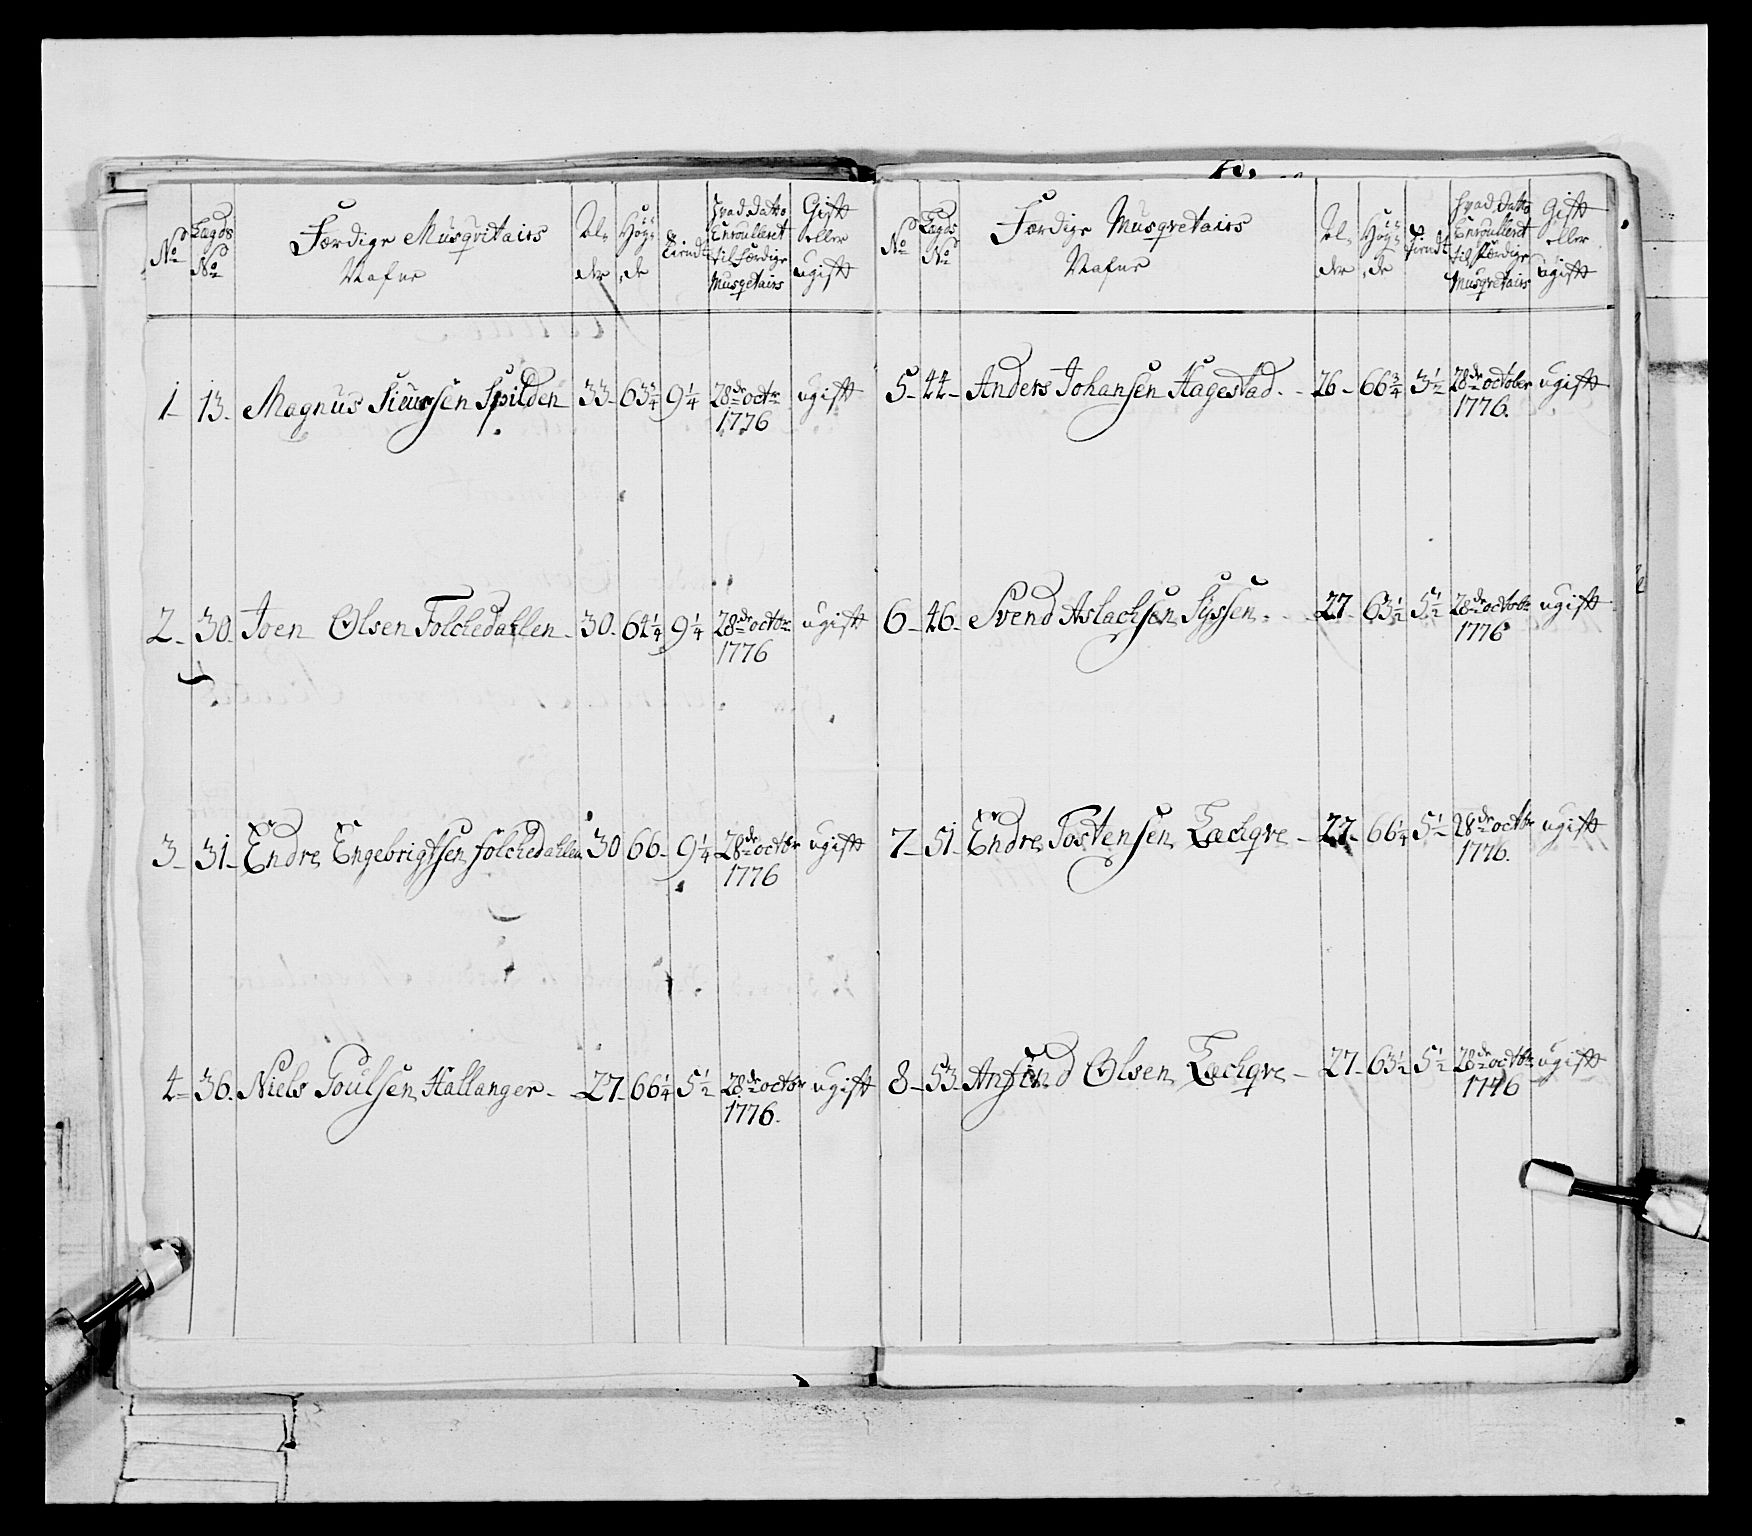 No
Lægds
No
Færdige Musqvitairs
Nafne
Al-
der
Høy-
de
Tiendt
Hvad Datto
Enroulleret
til færdige
Musqetairs
Gift
eller
ugift
1- 13. Magnus Siursen Spilden 33- 63¾ 9¼ 28de octr ugift
1776
2- 30. Joen Olsen Folchedahlen- 30- 64¼ 9¼ 28de octobr ugift
1776
3- 31- Endre Engebrigtsen folchedahlen 30 66- 9¼ 28de octobr ugift
1776
4- 36. Niels Poulsen Hallanger- 27- 66¼ 5½ 28de octobr ugift
1776.
No
Lægds
No
Færdige Musqvetairs
Nafne
Al-
der
Høy-
de
Tiendt
Hvad Datto
Enroulleret
til færdige
Musqvetairs
Gift
eller
ugift
5- 44- Anders Johansen Hagestad. 26- 66¾ 3½ 28de october ugift
1776.
6- 46- Svend Aslachsen Syssen. 27 63½ 5½ 28de octobr ugift
1776
7- 51- Endre Tostensen Lachqve- 27- 66¼ 5½ 28de octobr ugift
1776.
8- 53- Anfind Olsen Lachqve- 27- 63½ 5½ 28de octobr ugift
1776